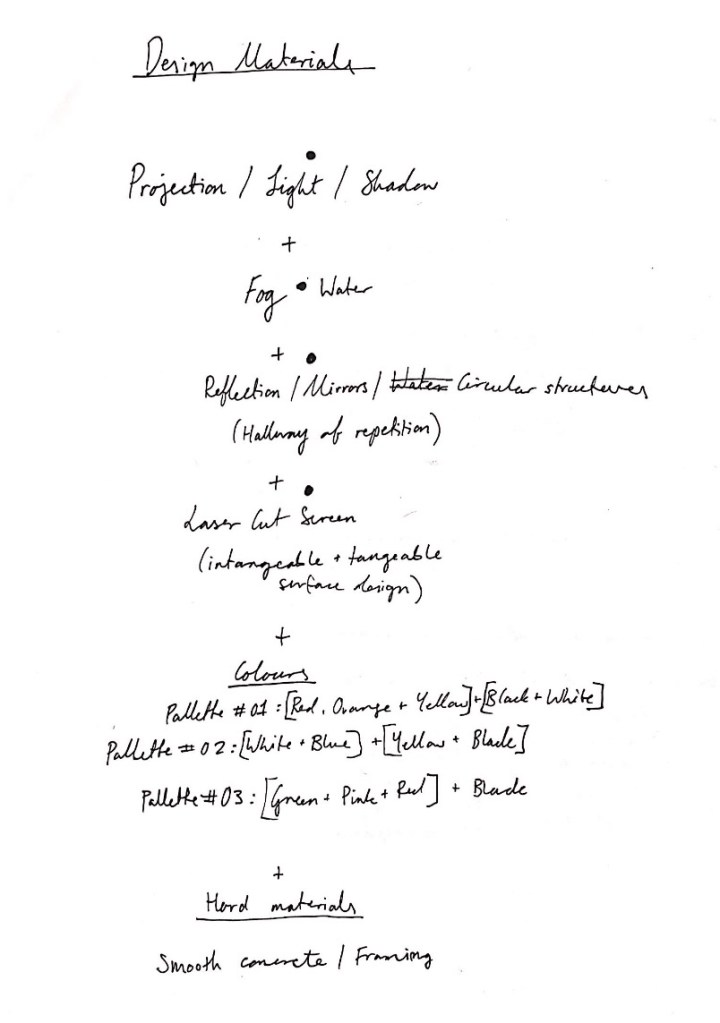 Design Materials
Projection / Light / Shadow
+
Fog • Water
+
Reflection / Mirrors / Water Circular structures
(Hallway of repetition)
+
Laser Cut Screen
(intangeable + tangeable
surface design)
+
Colours
Pallette #01 : [Red, Orange + Yellow] + [Black + White]
Pallette #02 : [White + Blue] + [Yellow + Black]
Pallette #03 : [Green + Pink + Red] + Black
+
Hard materials
Smooth concrete / Framing